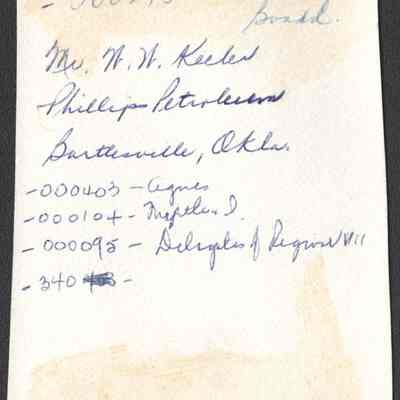 - 000295
Board.
Mr. W. W. Keeler
Phillips Petroleum
Bartlesville, Okla.
- 000403 - Agnes
- 000104 - Myrtle I.
- 000095 - Delegates of Region VII
- 340 -